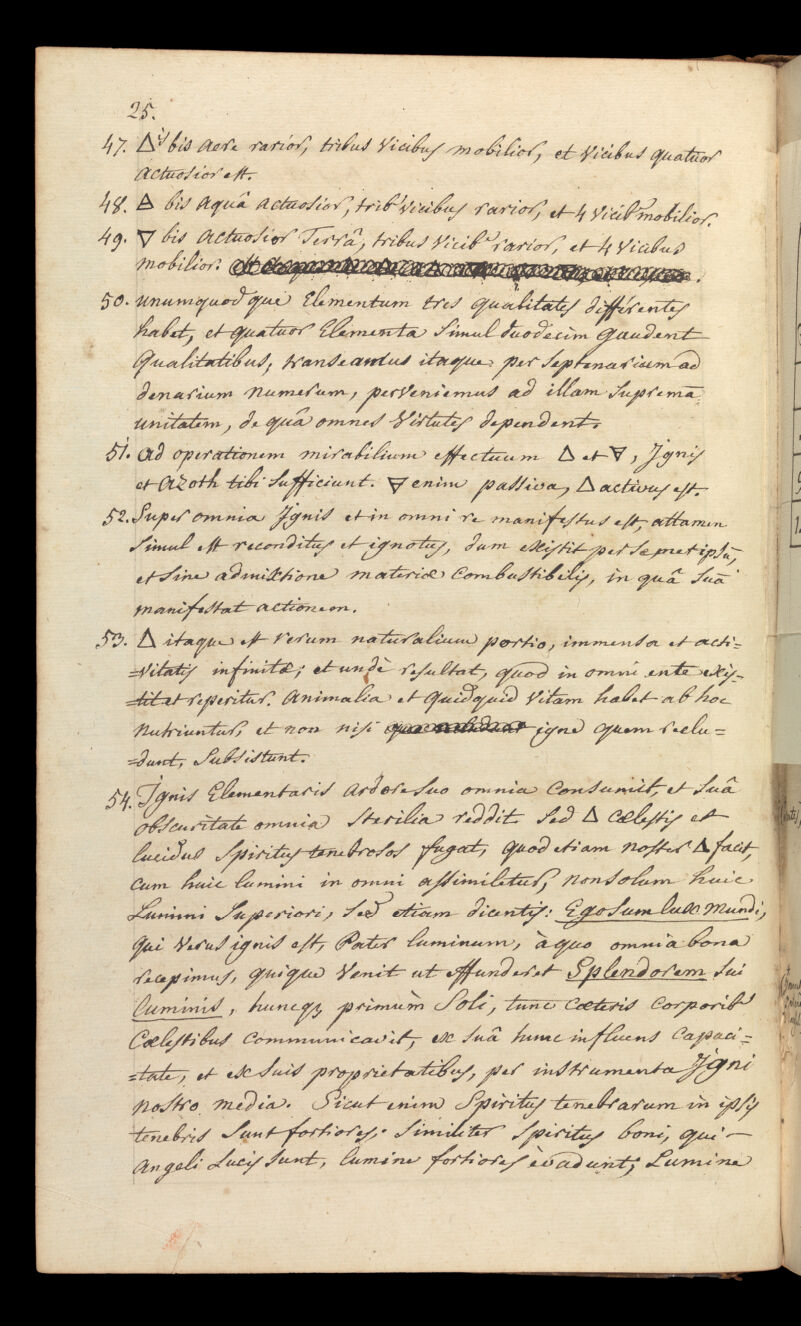 25.
47. △is bis aere rarior, tribus vicibus mobilior, et vicibus quatuor
actuosior est.
48. 🜁 bis aquâ actuosior, trib' vicibus rarior, et 4 vicib' mobilior.
49. ▽ bis actuosior Terrâ, tribus vicib' rarior, et 4 vicibus
mobilior.
50. unumquodque Elementum tres qualitates differentes
habet, et quatuor Elementa simul duodecim gaudent
Qualitatibus, transeamus itaque per septenarium ad
denarium numerum, perveniemus ad illam supremā
unitatem, de quâ omnes virtutes dependent.
51. ad operationem mirabilium effectuum △ et 🜃, Ignis
et azoth tibi sufficiunt. 🜃 enim passiva, △ activus est.
52. Super omnia Ignis et in omni re manifestus est, attamen
simul est reconditus et ignotus, dum existit per semet ipsū,
et sine admixtione materiæ combustibilis, in quâ suā
manifestat actionem.
53. △ itaque est rerum naturalium portio, immensa et acti=
=vitatis infinitæ; et undè resultat, quod in omni ente exis=
=tit et reperitur. animalia et quidquid vitam habet ab hoc
nutriuntur, et non nisi igne quem reclu=
=dunt, subsistunt.
54. Ignis Elementaris ardore suo omnia consumit, et suâ
obscuritate omnia sterilia reddit. sed △ cælestis et
lucidus spiritus tenebrosos fugat, quod etiam noster △ facit,
cum huic lumini in omni assimiletur, non solum huic
Lumini superiori, sed etiam dicentis: Ego sum lux mundi,
qui verus ignis est, Pater luminum, à quo omnia bona
recepimus, quique venit ut effunderet Splendorem sui
luminis, huncqz primùm Soli, tunc cæteris corporib'
Cælestibus communicavit, ex suâ hunc influens capaci=
=tate, et ex suis proprietatibus, per instrumenta Igni
nostro media. Sicut enim Spiritus tenebrarum in ipsis
tenebris sunt fortiores; similiter spiritus boni, qui—
angeli Lucis sunt, lumine fortiores evadunt; Lumine